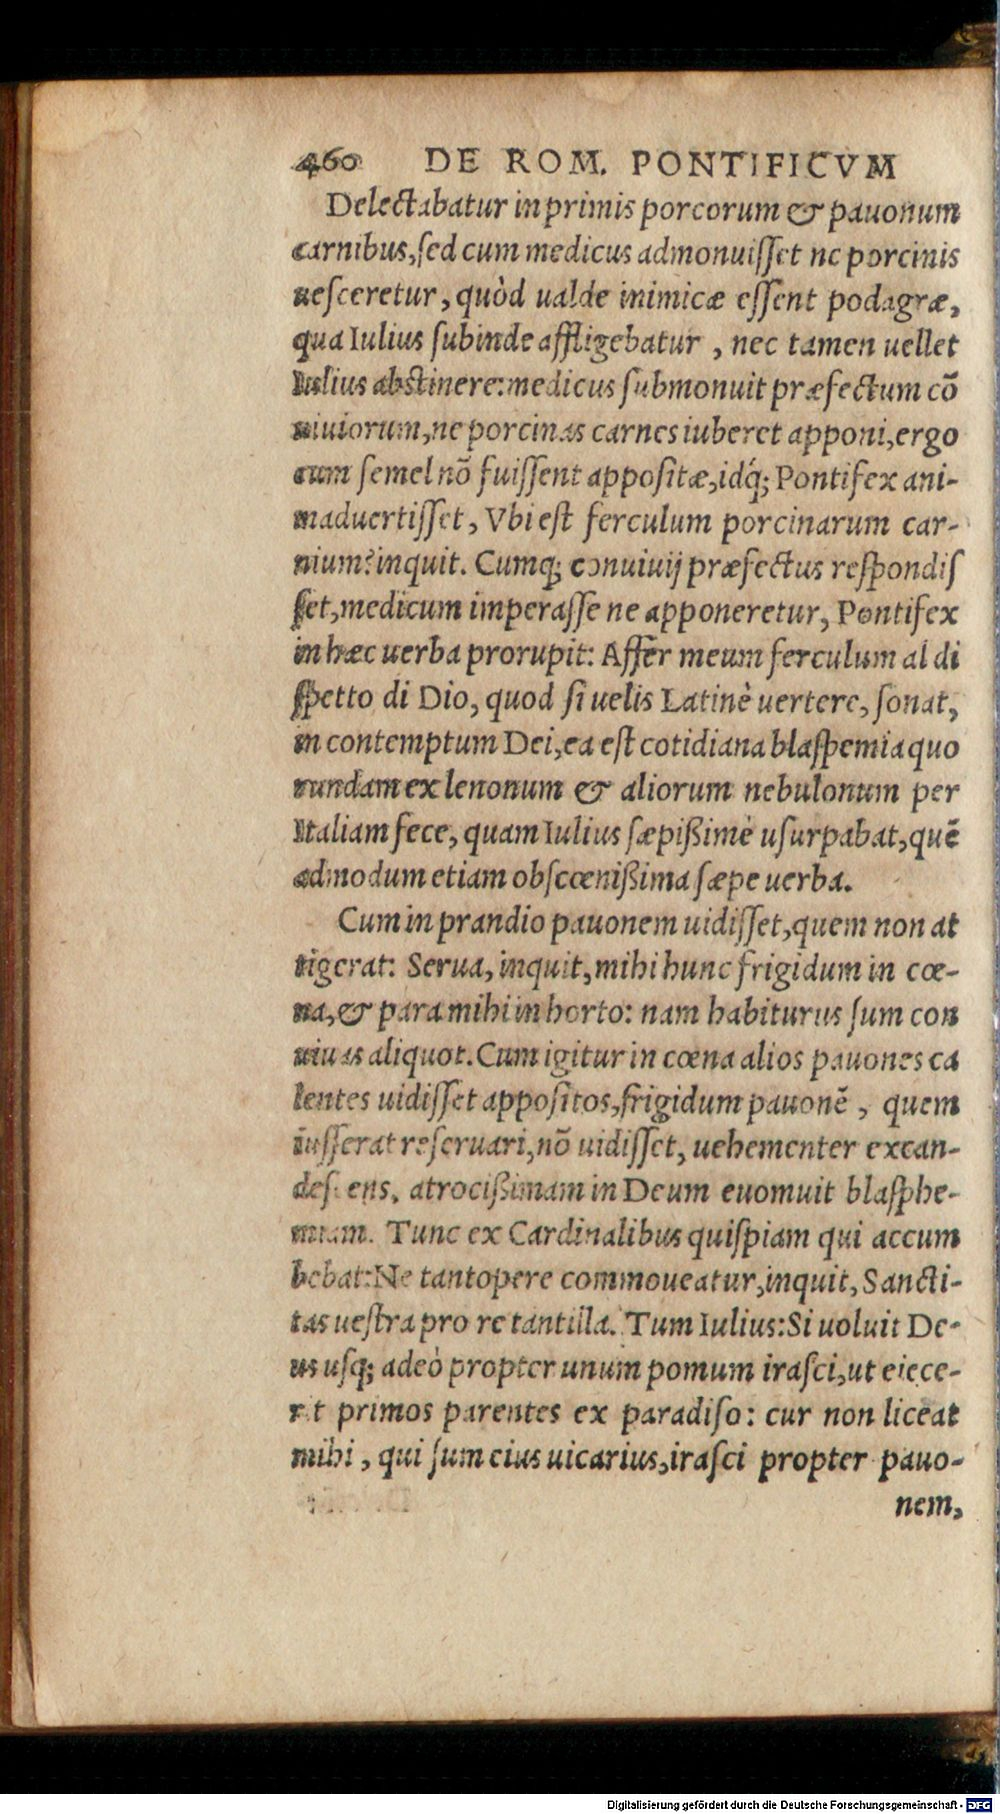 460 DE ROM. PONTIFICVM
Delectabatur in primis porcorum & pauonum
carnibus, sed cum medicus admonuisset ne porcinis
uesceretur, quòd ualde inimicæ essent podagræ,
qua Iulius subinde affligebatur, nec tamen uellet
Iulius abstinere: medicus submonuit præfectum cō
uiuiorum, ne porcinas carnes iuberet apponi, ergo
cum semel nō fuissent appositæ, idq́; Pontifex ani-
maduertisset, Vbi est ferculum porcinarum car-
nium? inquit. Cumq; conuiuij præfectus respondis
set, medicum imperasse ne apponeretur, Pontifex
in hæc uerba prorupit: Affer meum ferculum al di
spetto di Dio, quod si uelis Latinè uertere, sonat,
in contemptum Dei, ea est cotidiana blaspemia quo
rundam ex lenonum & aliorum nebulonum per
Italiam fece, quam Iulius sæpißimè usurpabat, quē
admodum etiam obscœnißima sæpe uerba.
Cum in prandio pauonem uidisset, quem non at
tigerat: Serua, inquit, mihi hunc frigidum in cœ-
na, & para mihi in horto: nam habiturus sum con
uiuas aliquot. Cum igitur in cœna alios pauones ca
lentes uidisset appositos, frigidum pauonē, quem
iusserat reseruari, nō uidisset, uehementer excan-
descens, atrocißimam in Deum euomuit blasphe-
miam. Tunc ex Cardinalibus quispiam qui accum
bebat: Ne tantopere commoueatur, inquit, Sancti-
tas uestra pro re tantilla. Tum Iulius: Si uoluit De-
us usq; adeò propter unum pomum irasci, ut eiece-
rit primos parentes ex paradiso: cur non liceat
mihi, qui sum eius uicarius, irasci propter pauo-
nem,
Digitalisierung gefördert durch die Deutsche Forschungsgemeinschaft - DFG